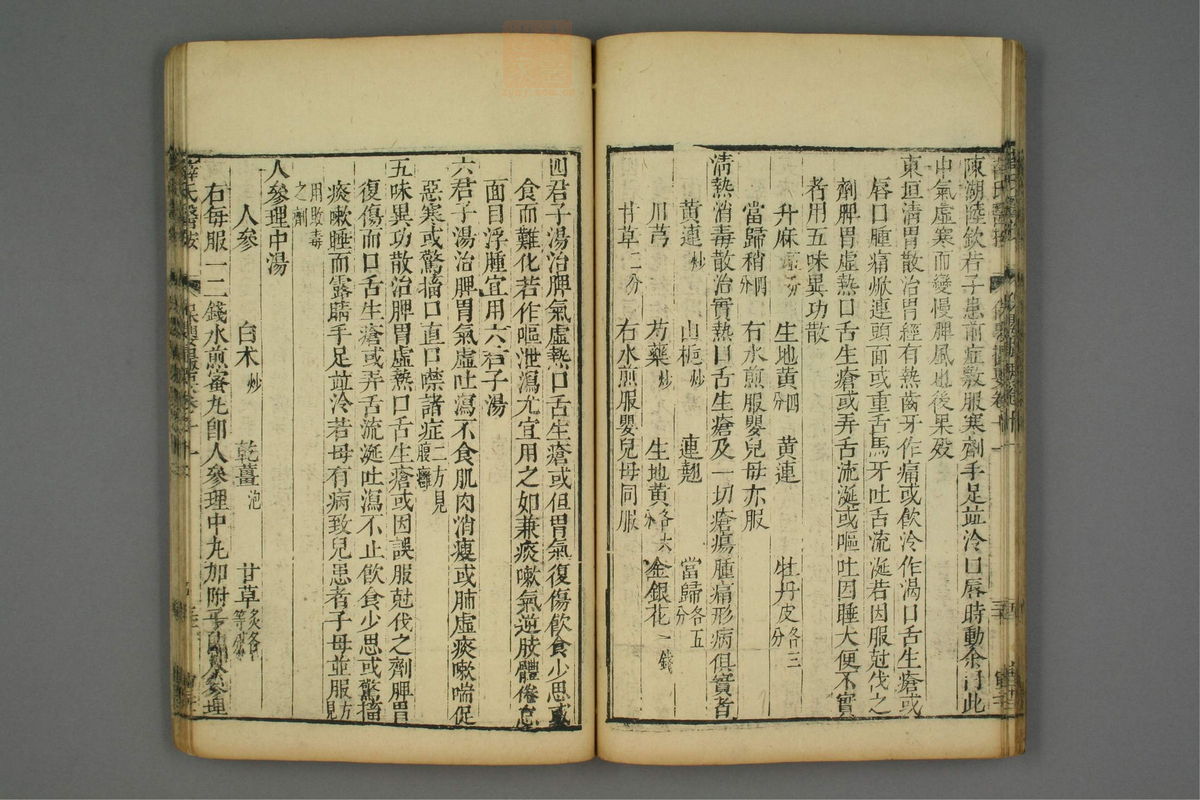 陳湖陸欽若子患前症數服寒劑手足並冷口唇時動余謂此
中氣虛寒而變慢脾風也後果歿
東垣清胃散治胃經有熱齒牙作痛或飲冷作渴口舌生瘡或
唇口腫痛焮連頭面或重舌馬牙吐舌流涎若因服尅伐之
劑脾胃虛熱口舌生瘡或弄舌流涎或嘔吐困睡大便不實
者用五味異功散
升麻 生地黃四分 黃連 牡丹皮各三分
當歸稍四分 右水煎服嬰兒母亦服
清熱消毒散治實熱口舌生瘡及一切瘡瘍腫痛形病俱實者
黃連炒 山梔炒 連翹 當歸各五分
川芎 芍藥炒 生地黃各六分 金銀花一錢
甘草二分 右水煎服嬰兒母同服
四君子湯治脾氣虛熱口舌生瘡或但胃氣復傷飲食少思或
食而難化若作嘔泄瀉尤宜用之如兼痰嗽氣逆肢體倦怠
面目浮腫宜用六君子湯
六君子湯治脾胃氣虛吐瀉不食肌肉消瘦或肺虛痰嗽喘促
惡寒或驚搐口直口噤諸症二方見腹癰
五味異功散治脾胃虛熱口舌生瘡或因誤服尅伐之劑脾胃
復傷而口舌生瘡或弄舌流涎吐瀉不止飲食少思或驚搐
痰嗽睡而露睛手足並冷若母有病致兒患者子母並服方見
用敗毒之劑
人參理中湯
人參 白朮炒 乾薑泡 甘草炙各等分
右每服一二錢水煎蜜丸卽人參理中丸加附子卽人參理
薛氏醫按